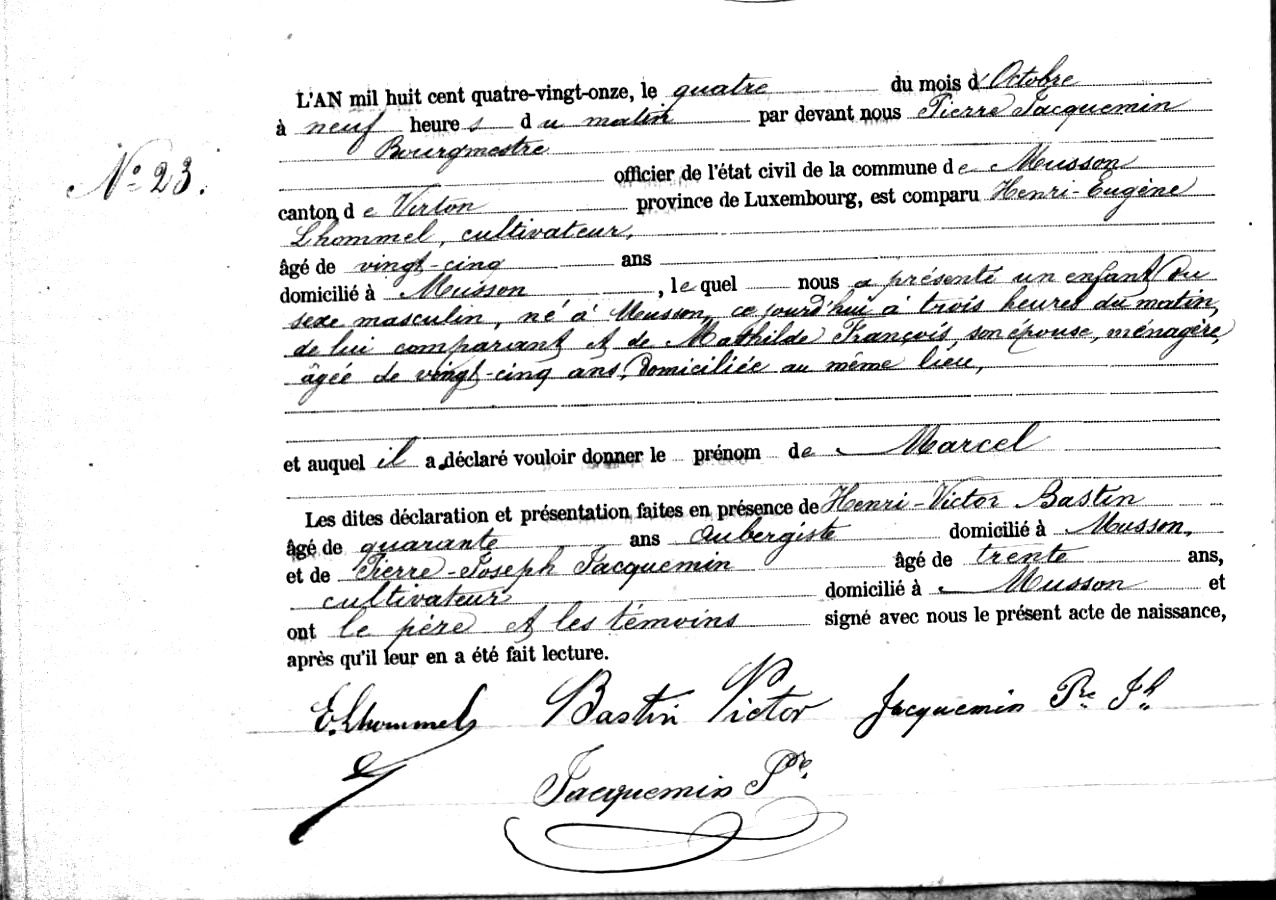 L'AN mil huit cent quatre-vingt-onze, le quatre du mois d'Octobre
à neuf heures du matin par devant nous Pierre Jacquemin
Bourgmestre
N° 23.
officier de l'état civil de la commune de Musson
canton de Virton province de Luxembourg, est comparu Henri-Eugène
Lhommel, cultivateur,
âgé de vingt-cinq ans
domicilié à Musson, lequel nous a présenté un enfant du
sexe masculin, né à Musson, ce jourd'hui à trois heures du matin,
de lui comparant et de Mathilde François, son épouse, ménagère,
âgée de vingt-cinq ans, domiciliée au même lieu,
et auquel il a déclaré vouloir donner le prénom de Marcel
Les dites déclaration et présentation faites en présence de Henri-Victor Bastin
âgé de quarante ans aubergiste domicilié à Musson,
et de Pierre-Joseph Jacquemin âgé de trente ans,
cultivateur domicilié à Musson et
ont le père et les témoins signé avec nous le présent acte de naissance,
après qu'il leur en a été fait lecture.
E. Lhommel Bastin Victor Jacquemin Pre Jh
Jacquemin Pre.